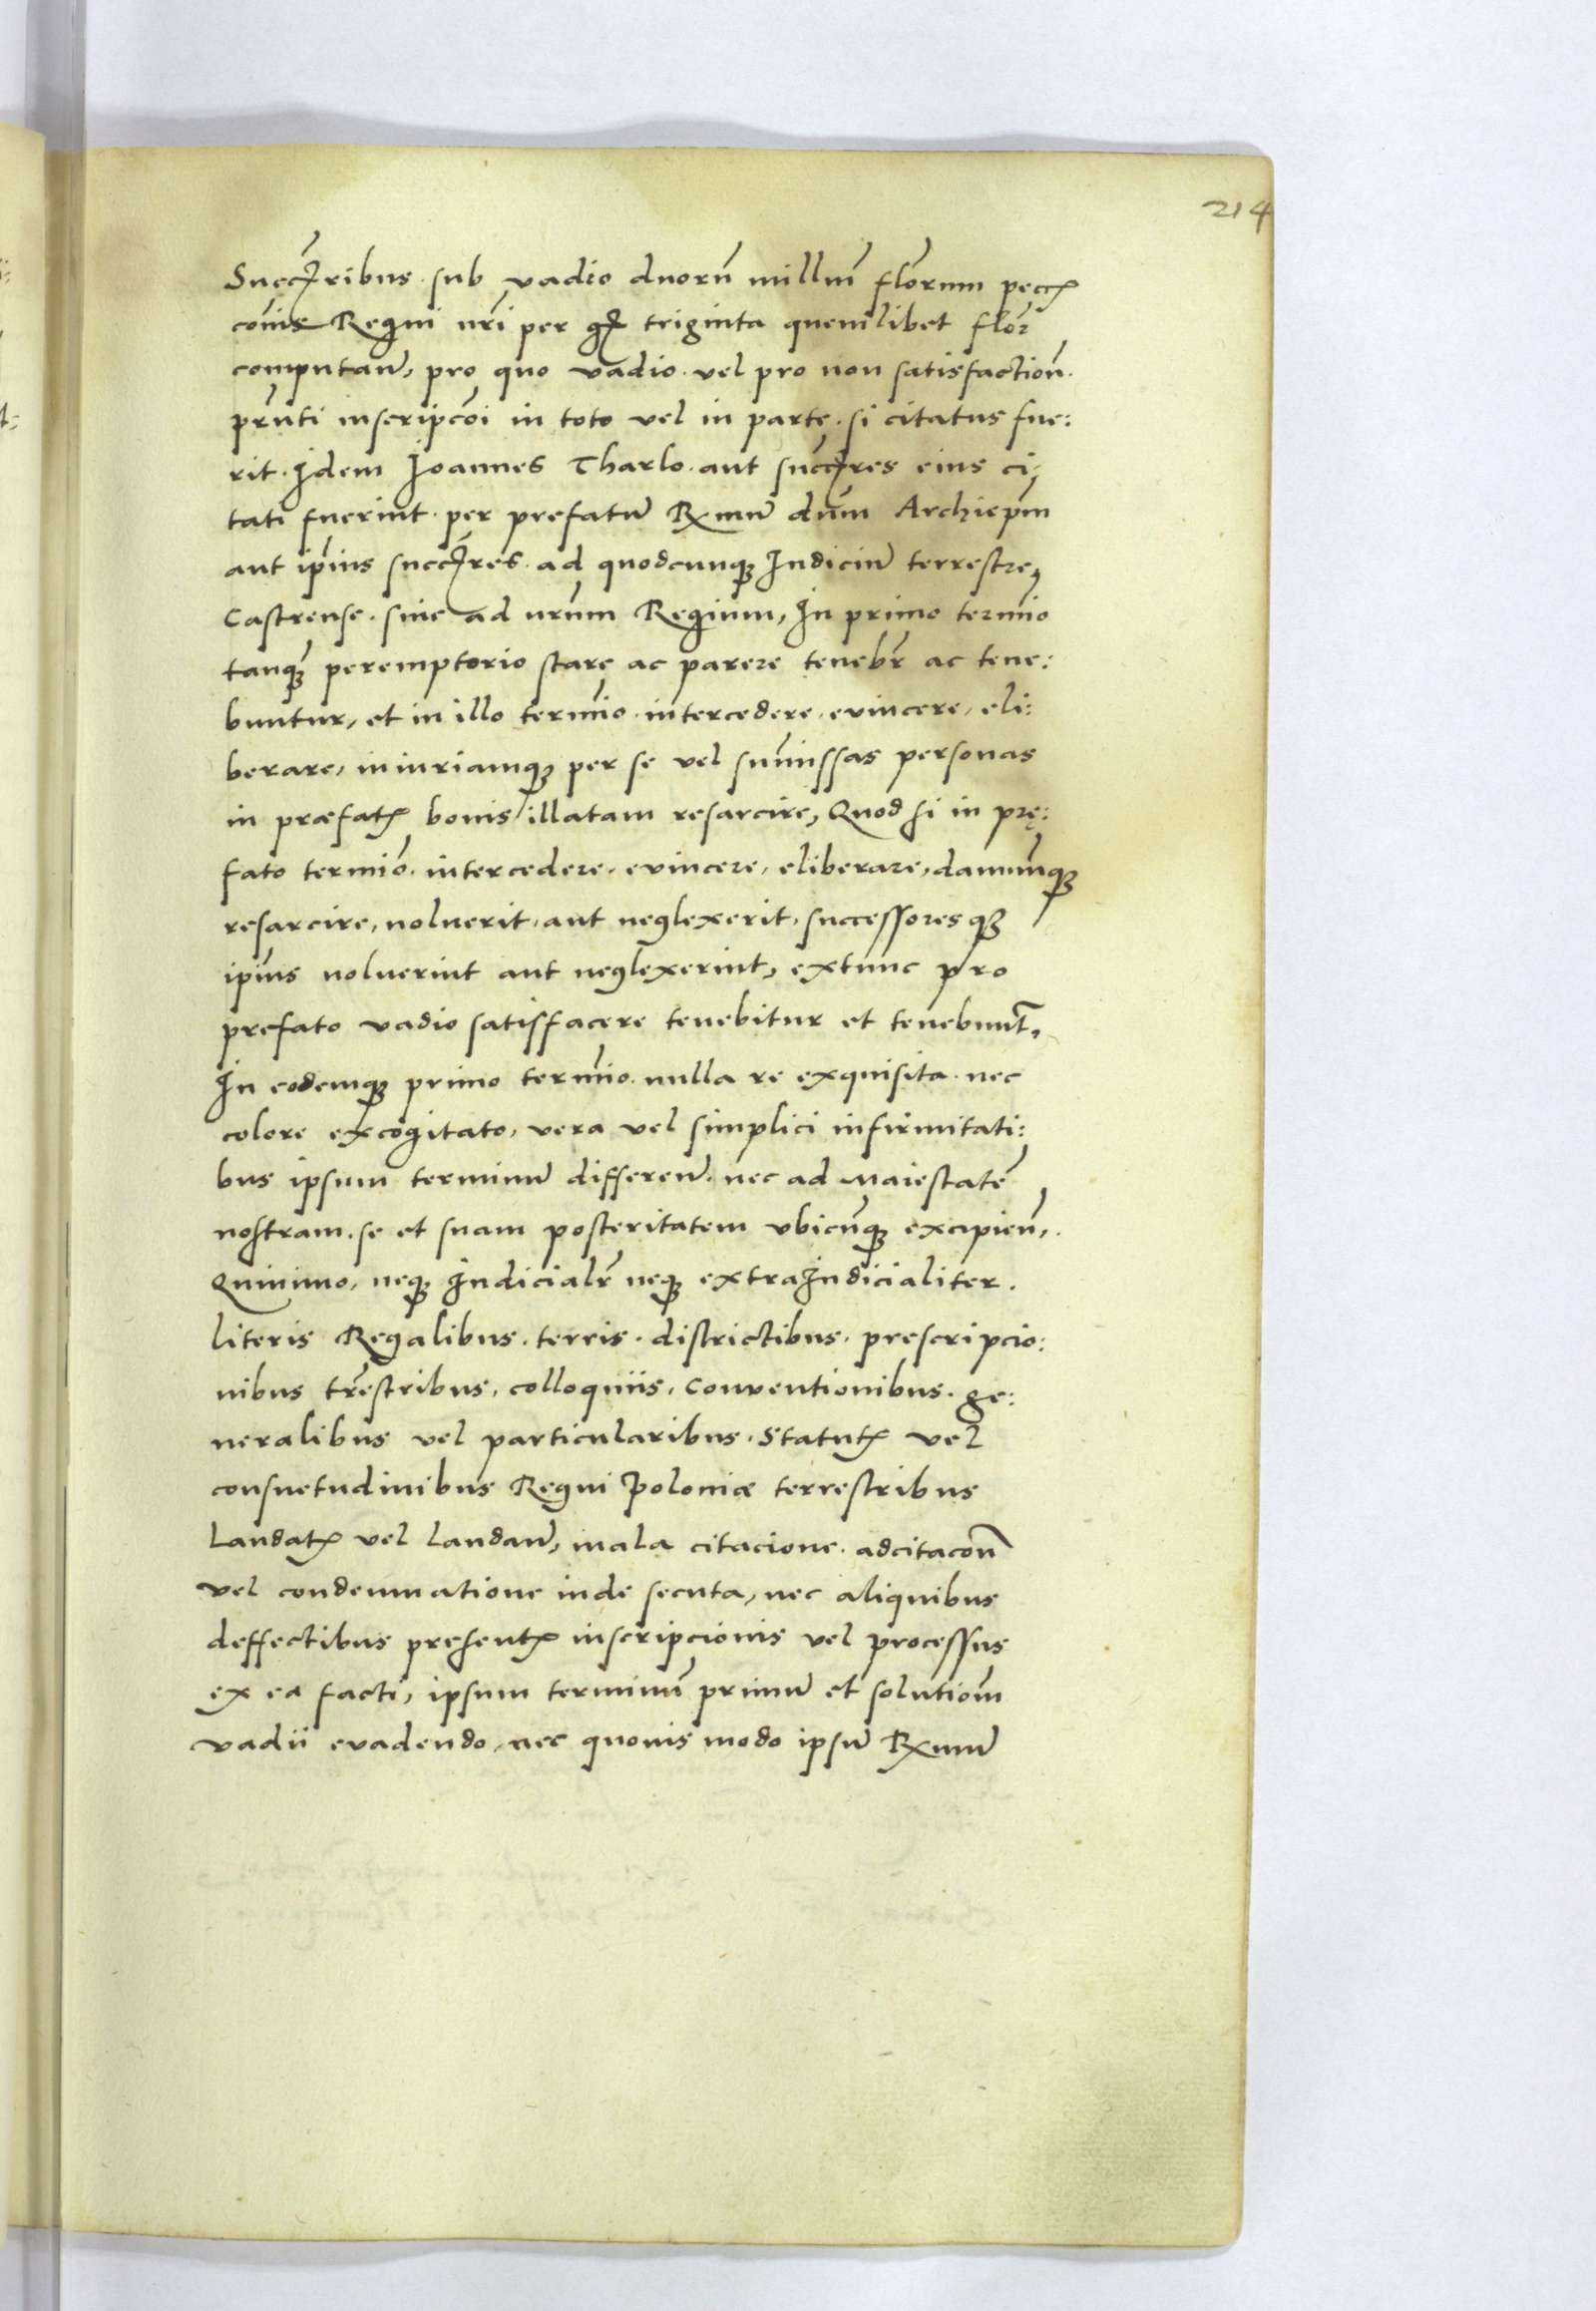 214
Succ̃ribus. sub vadio duorũ milliũ flõrum pecc̃
cõnis Regni nr̃i per gr̃ triginta quemlibet flor̃
computan̄, pro quo vadio. vel pro non satisfaction̄.
prñti inscripcõi in toto vel in parte. si citatus fue:
rit. Idem Joannes Tharlo. aut succ̃res eius ci/
tati fuerint. per prefatũ Rx̃mũ dñm Archiep̃m
aut ip̃ius succ̃res. ad quodcunqꝫ Iudiciũ terrestre,
Castrense. siue ad nr̃um Regium, In primo termĩo
tanqꝫ peremptorio stare ac parere tenebr̃ ac tene:
buntur, et in illo termĩo. intercedere, evincere, eli:
berare, iniuriamqꝫ per se vel sum̃issas personas
in præfat̃ bonis illatam resarcire, Quod si in prę:
fato termiõ. intercedere. evincere, eliberare, damnũqꝫ
resarcire, noluerit, aut neglexerit, successoresqꝫ
ip̃ius noluerint aut neglexerint, extunc pro
prefato vadio satisfacere tenebitur et tenebunt̃,
In eodemqꝫ primo termĩo. nulla re exquisita. nec
colore excogitato, vera vel simplici infirmitati:
bus ipsum terminũ differen̄. nec ad Maiestatẽ
nostram. se et suam posteritatem vbicũqꝫ excipien̄,.
Quinimo, neqꝫ Iudicialr̃ neqꝫ extraIudicialiter.
literis Regalibus. terris. districtibus. prescripcio:
nibus tr̃estribus, colloquiis, Conventionibus. ge:
neralibus vel particularibus. Statut̃ vel
consuetudinibus Regni Poloniæ terrestribus
Laudat̃ vel laudan̄, mala citacione. adcitacõn̄
vel condemnatione inde secuta, nec aliquibus
deffectibus present̃ inscripcionis vel processus
ex ea facti, ipsum terminũ primũ et solutiõm
vadii evadendo, nec quouis modo ipsũ Rx̃mũ